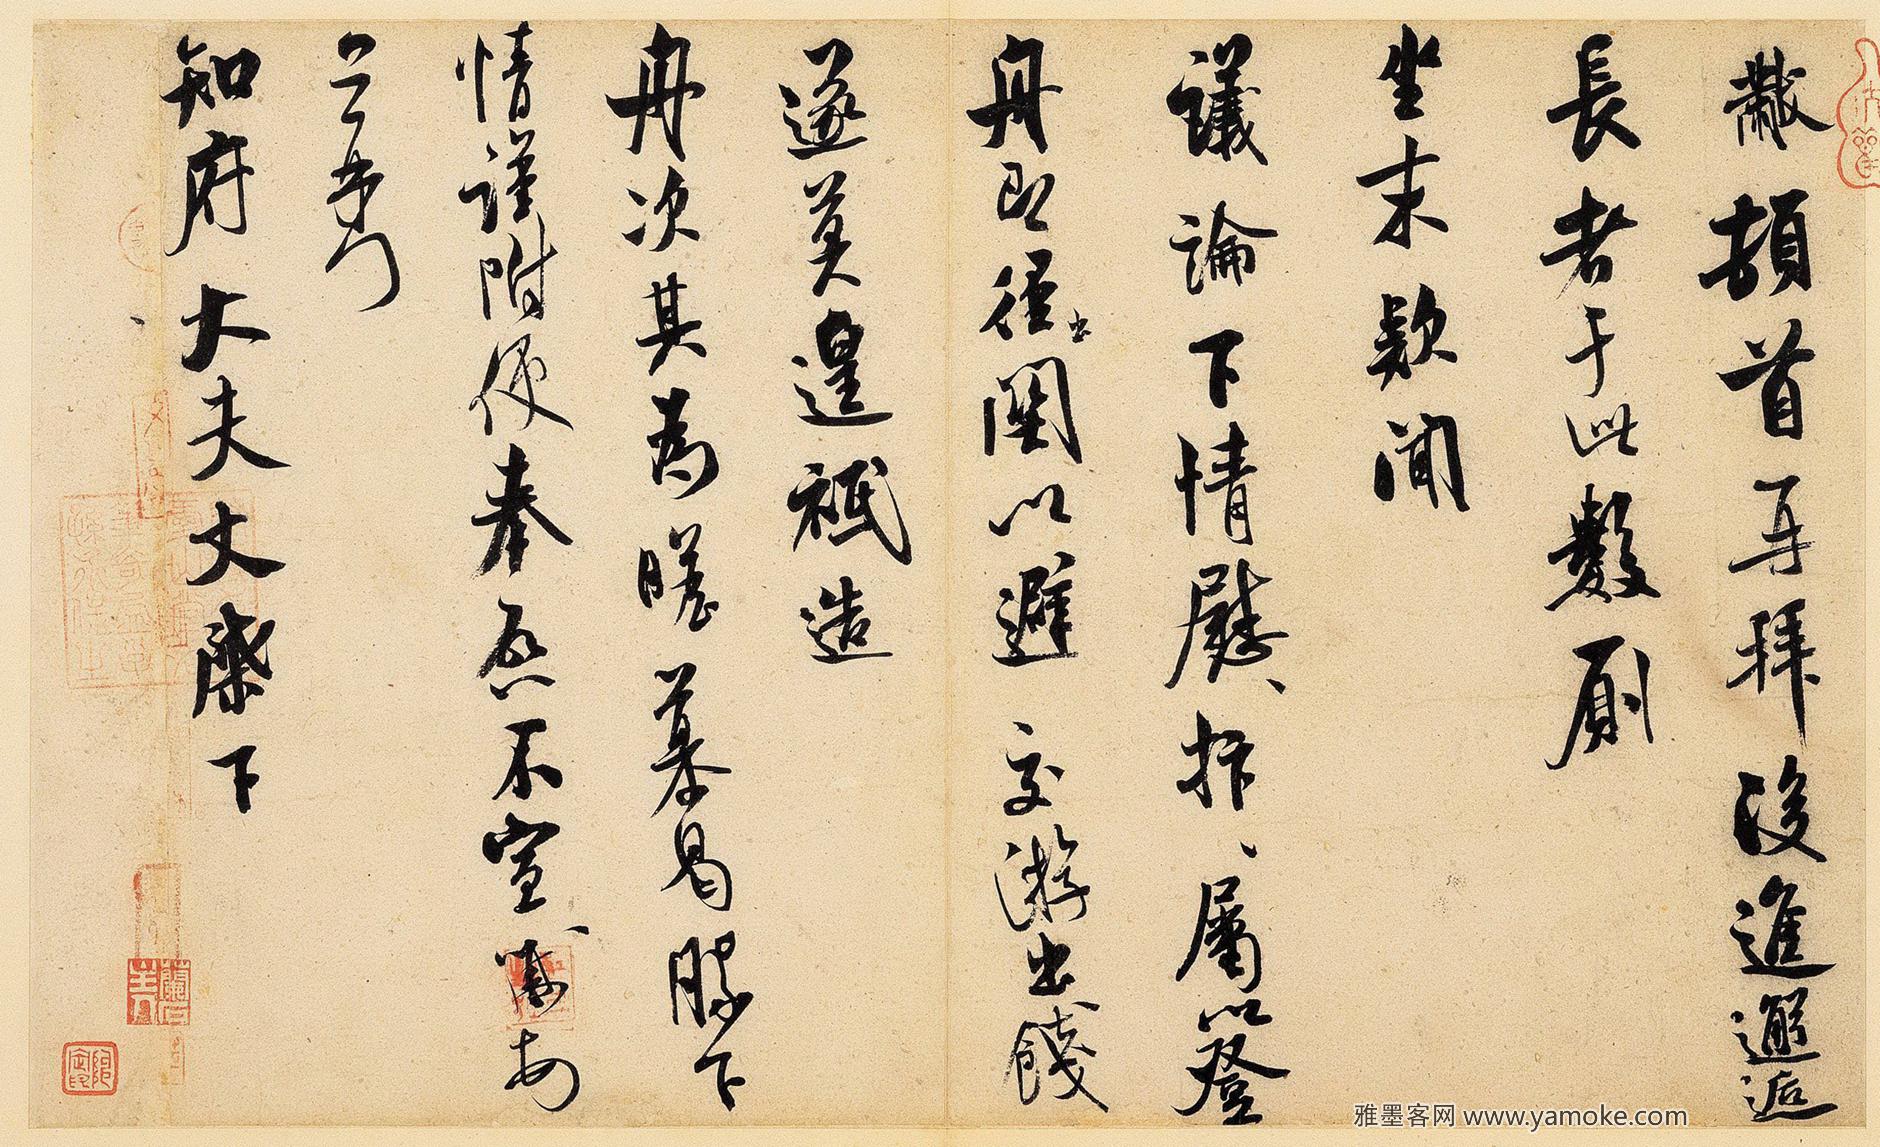 黻頓首再拜後進邂逅
長者于此數厠
坐末款聞
議論下情慰、怍、屬以登
舟即徑出關以避交游出餞
遂莫遑祗造
舟次其為瞻慕曷勝下
情謹附便奉啟不宣、黻
知府大夫丈棨下
雅墨客网 www.yamoke.com